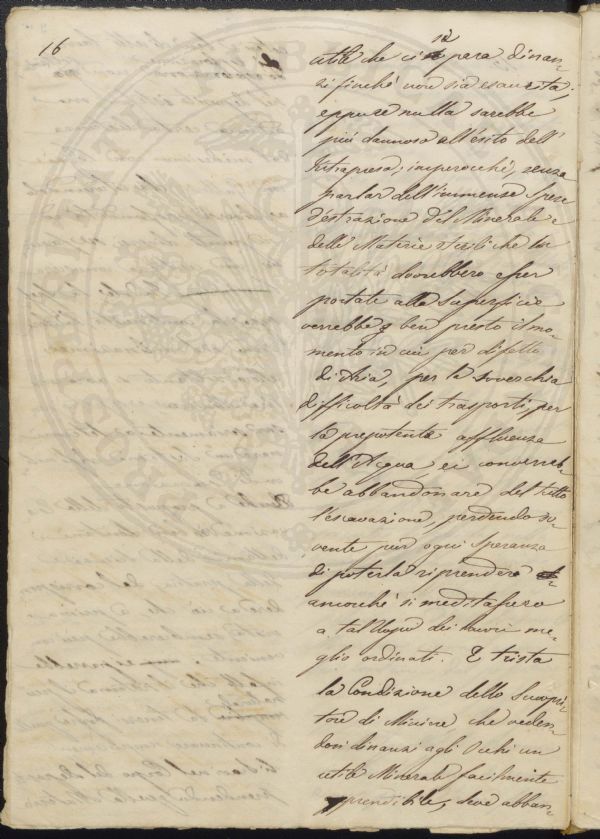 16
utile che ci si para dinan-
zi finché non sia esaurita;
eppure nulla sarebbe
più dannoso all'esito dell'
Intrapresa; imperocchè, senza
parlar dell'immense Spese
d'estrazione del Minerale e
delle Materie sterili che in
totalità dovrebbero esser
portate alla Superficie
verrebbe ben presto il mo-
mento in cui per difetto
di Aria, per la soverchia
difficoltà dei trasporti, per
la prepotente affluenza
dell'Acqua ci converreb-
be abbandonare del tutto
l'escavazione, perdendo so-
vente pur ogni Speranza
di poterla riprendere
ancorchè si meditassero
a tal Uopo dei lavori me-
glio ordinati. È trista
la Condizione dello Scuopri-
tore di Miniere che veden-
dosi dinanzi agli Occhi un
utile Minerale facilmente
prendibile, deve abban-